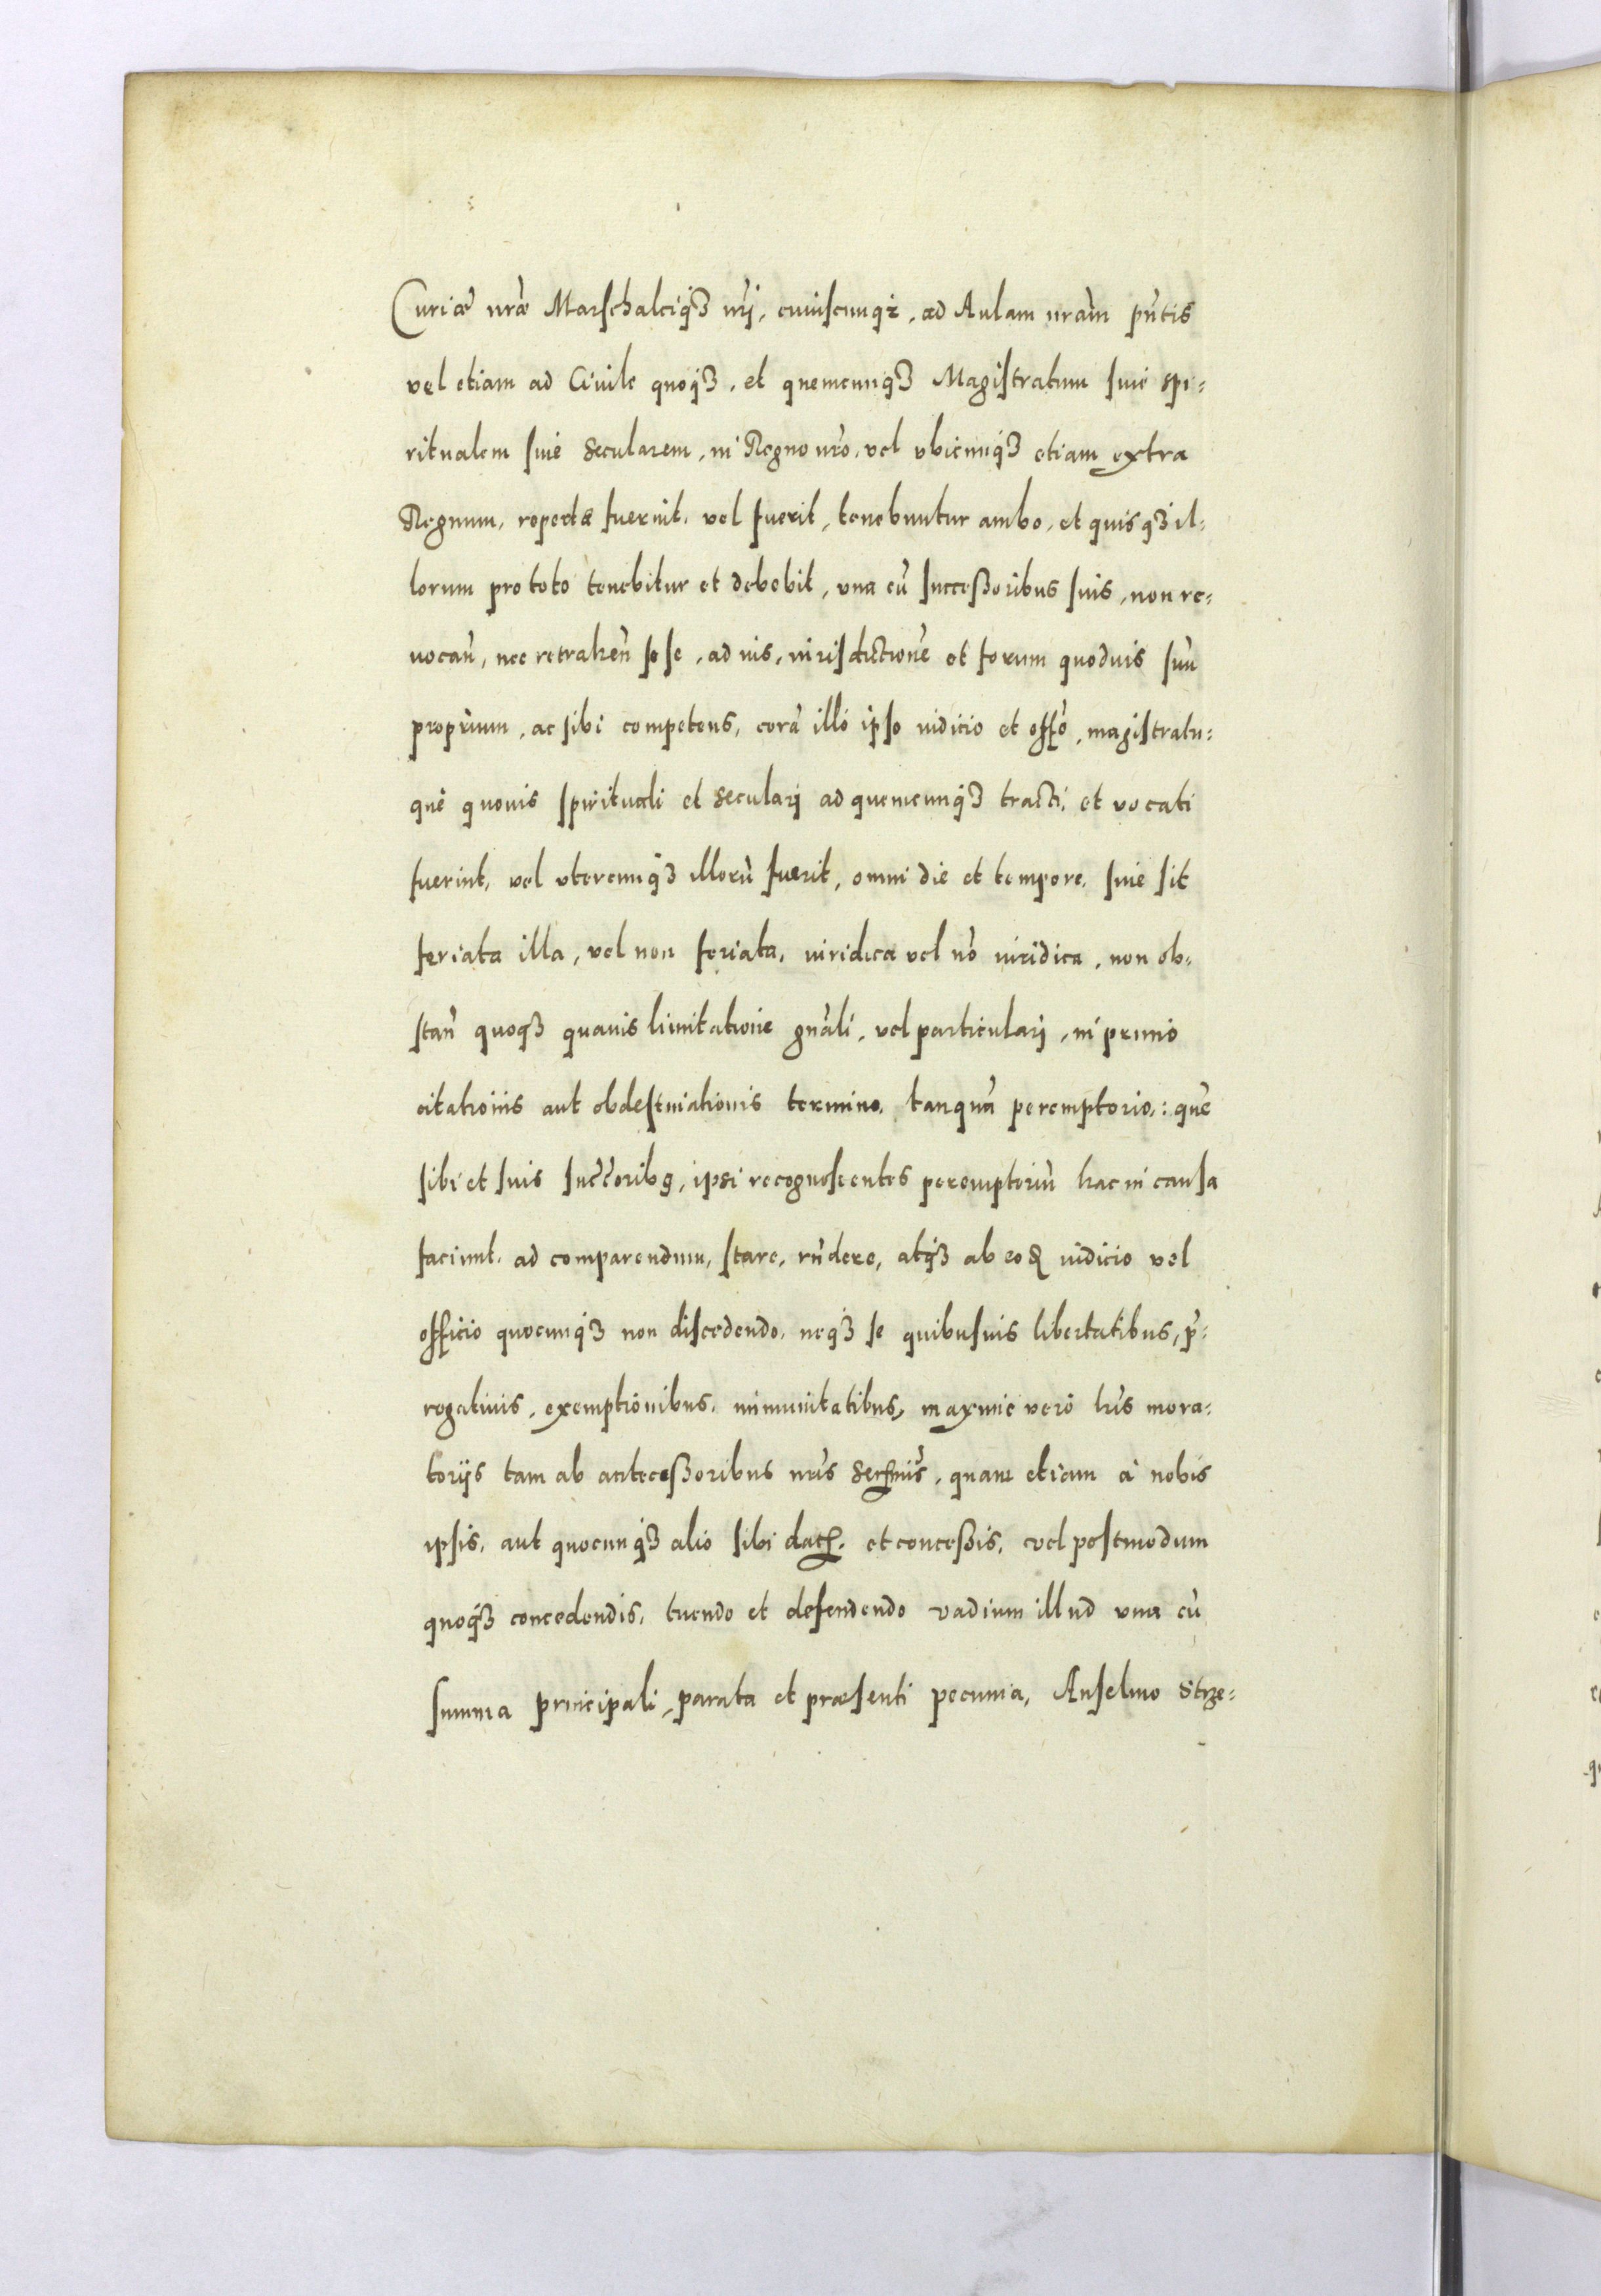 Curiæ nr̃æ Marschalciq́ꝫ nr̃j, cuiuscunq́ꝫ, ad Aulam nr̃am pñtis
vel etiam ad Ciuile quoq́ꝫ, et quemcunq́ꝫ Magistratum siue spi=
ritualem siue secularem, in Regno nr̃o, vel vbicunq́ꝫ etiam extra
Regnum, repertæ fuerint, vel fuerit, tenebuntur ambo, et quisqꝫ il=
lorum pro toto tenebitur et debebit, vna cũ successoribus suis, non re=
uocañ, nec retraheñ sese, ad ius, iurisdictionẽ et forum quoduis suũ
proprium, ac sibi competens, corã illo ipso iudicio et offõ, magistratu=
que quouis spirituali et secularj ad quemcunq́ꝫ tracti, et vocati
fuerint, vel vtercunq́ꝫ illorũ fuerit, omni die et tempore, siue sit
feriata illa, vel non feriata, iuridica vel nõ iuridica, non ob=
stañ quoqꝫ quauis limitatione gñali, vel particularj, in primo
citationis aut obdestinationis termino, tanquã peremptorio,: quẽ
sibi et suis succ̃oribꝯ, ipsi recognoscentes peremptoriũ hac in causa
faciunt, ad comparendum, stare, rñdere, atq́ꝫ ab eoꝺ iudicio vel
officio quocunq́ꝫ non discedendo, neq́ꝫ se quibusuis libertatibus, p̃=
rogatiuis, exemptionibus, immunitatibus, maxime vero lr̃is mora=
torijs tam ab antecessoribus nr̃is Serẽmis, quam etiam à nobis
ipsis, aut quocunq́ꝫ alio sibi datꝭ, et concessis, vel postmodum
quoq́ꝫ concedendis, tuendo et defendendo vadium illud vna cũ
summa principali, parata et præsenti pecunia, Anselmo Strze=